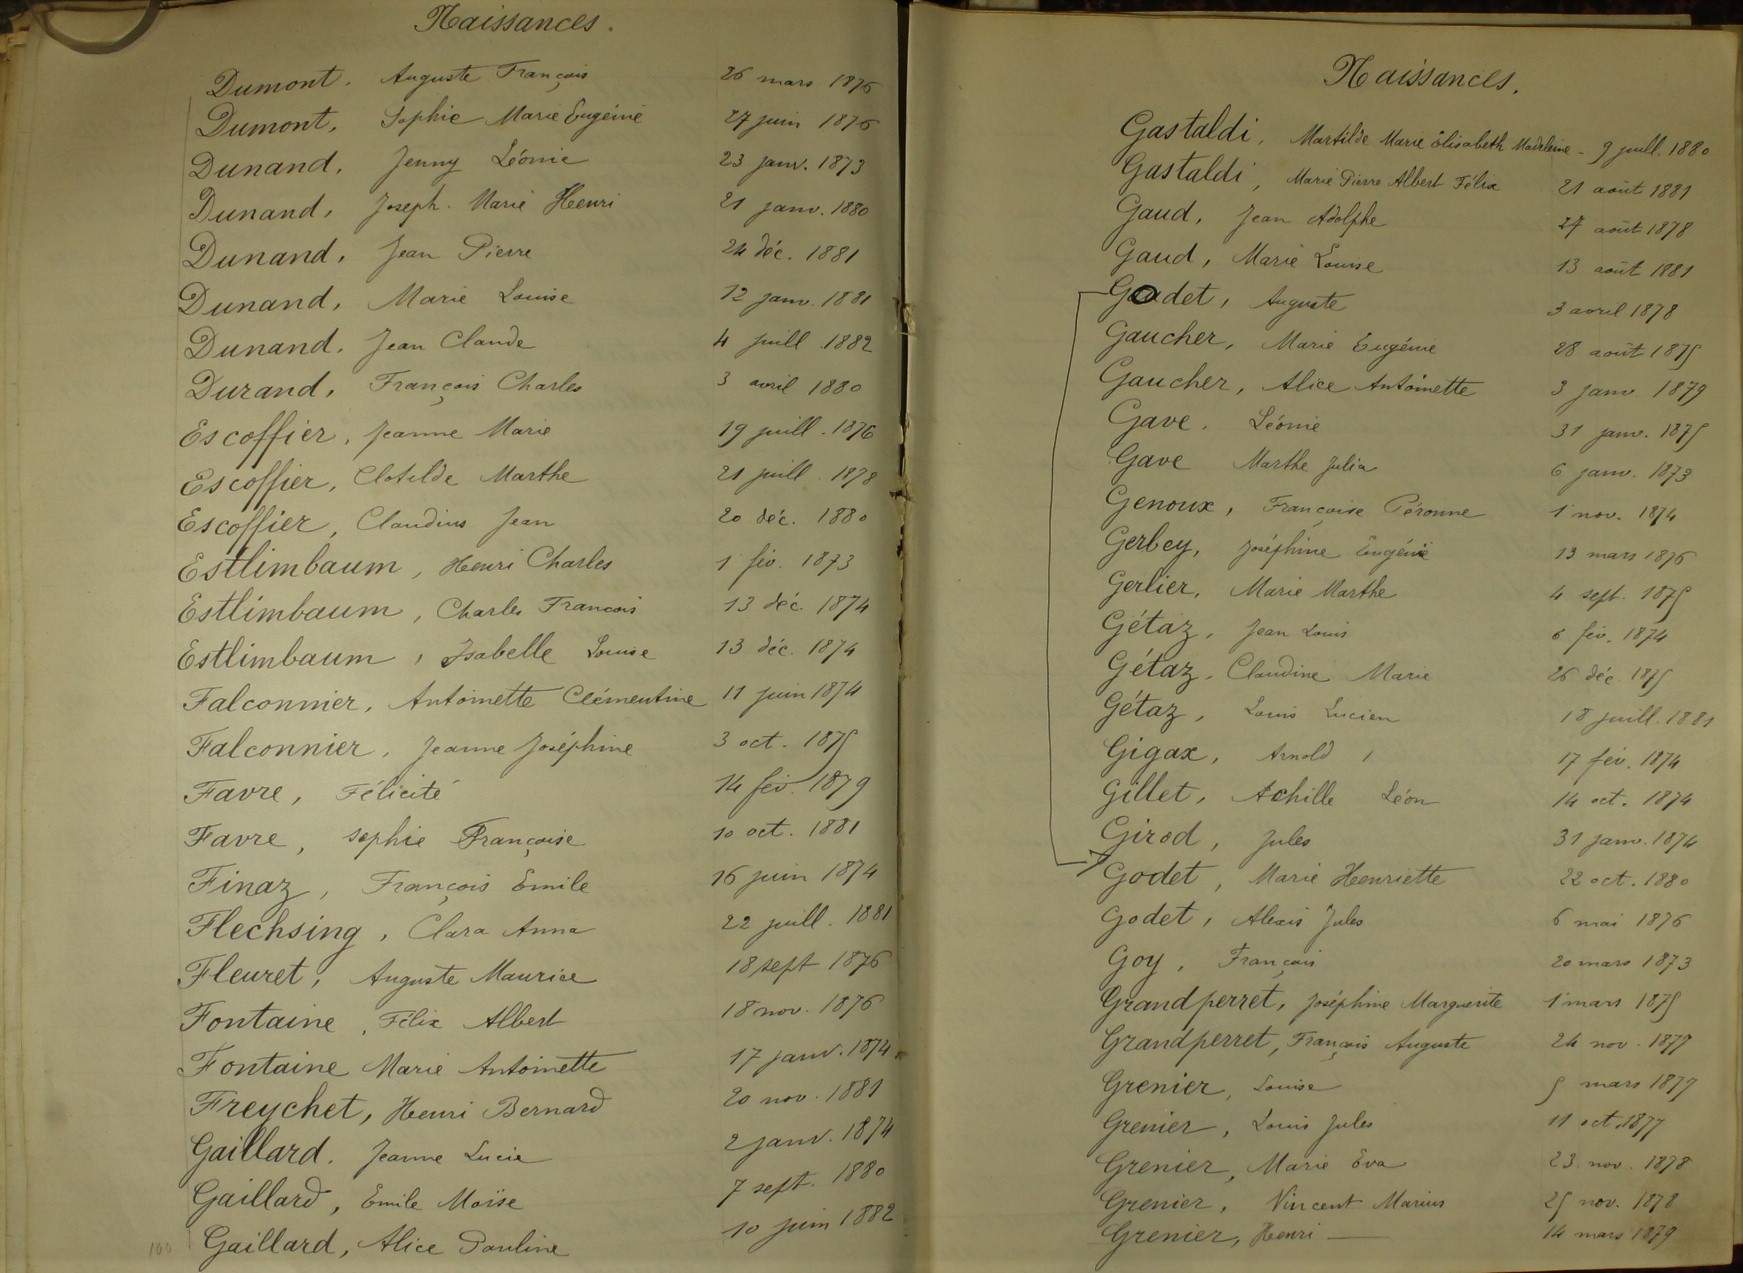 Naissances.
Dumont. Auguste François 26 mars 1876
Dumont, Sophie Marie Eugénie 27 juin 1876
Dunand, Jenny Léonie 23 janv. 1873
Dunand, Joseph. Marie Henri 21 janv. 1880
Dunand, Jean Pierre 24 déc. 1881
Dunand, Marie Louise 12 janv. 1881
Dunand, Jean Claude 4 juill 1882
Durand, François Charles 3 avril 1880
Escoffier, Jeanne Marie 19 juill. 1876
Escoffier, Clotilde Marthe 21 juill. 1878
Escoffier, Claudius Jean 20 déc. 1880
Estlimbaum, Henri Charles 1 fév. 1873
Estlimbaum, Charles François 13 déc. 1874
Estlimbaum, Isabelle Louise 13 déc. 1874
Falconnier, Antoinette Clémentine 11 juin 1874
Falconnier, Jeanne Joséphine 3 oct. 1875
Favre, Félicité 14 fév. 1879
Favre, Sophie Françoise 10 oct. 1881
Finaz, François Emile 16 juin 1874
Flechsing, Clara Anna 22 juill. 1881
Fleuret, Auguste Maurice 18 sept 1876
Fontaine, Félix Albert 18 nov. 1876
Fontaine Marie Antoinette 17 janv. 1874
Freychet, Henri Bernard 20 nov. 1881
Gaillard. Jeanne Lucie 2 janv. 1874
Gaillard, Emile Moïse 7 sept. 1880
100 Gaillard, Alice Pauline 10 juin 1882
Naissances.
Gastaldi, Martilde Marie Elisabeth Madeleine - 9 juill. 1880
Gastaldi, Marie Pierre Albert Félix 21 août 1881
Gaud, Jean Adolphe 27 août 1878
Gaud, Marie Louise 13 août 1881
Godet, Auguste 3 avril 1878
Gaucher, Marie Eugénie 28 août 1875
Gaucher, Alice Antoinette 3 janv 1879
Gave, Léonie 31 janv. 1875
Gave Marthe Julia 6 janv. 1873
Genoux, Françoise Péronne 1 nov. 1874
Gerbey, Joséphine Eugénie 13 mars 1876
Gerlier, Marie Marthe 4 sept. 1875
Gétaz, Jean Louis 6 fév. 1874
Gétaz, Claudine Marie 26 déc 1875
Gétaz, Louis Lucien 18 juill. 1881
Gigax, Arnold, 17 fév. 1874
Gillet, Achille Léon 14 oct. 1874
Girod, Jules 31 janv. 1874
Godet, Marie Henriette 22 oct. 1880
Godet, Alexis Jules 6 mai 1876
Goy, François 20 mars 1873
Grandperret, Joséphine Marguerite 1 mars 1875
Grandperret, François Auguste 24 nov. 1877
Grenier, Louise 5 mars 1877
Grenier, Louis Jules 11 oct. 1877
Grenier, Marie Eva 23 nov. 1878
Grenier, Vincent Marius 25 nov. 1878
Grenier, Henri — 14 mars 1879